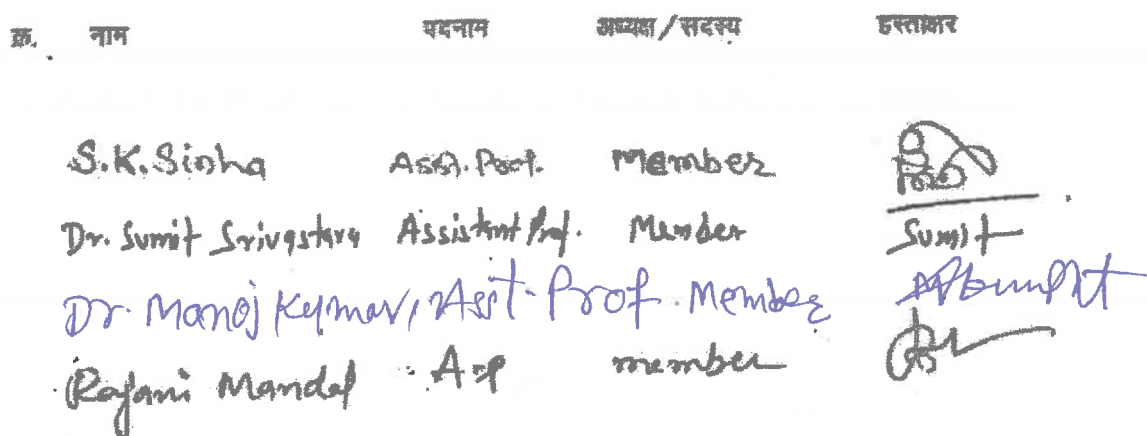 क्र. नाम पदनाम अध्यक्ष/सदस्य हस्ताक्षर
S.K.Sinha Asst. Prof. Member
Dr. Sumit Srivastava Assistant Prof. Member Sumit
Dr. Manoj Kumar, Asst. Prof Member
Rajani Mandal A.P member